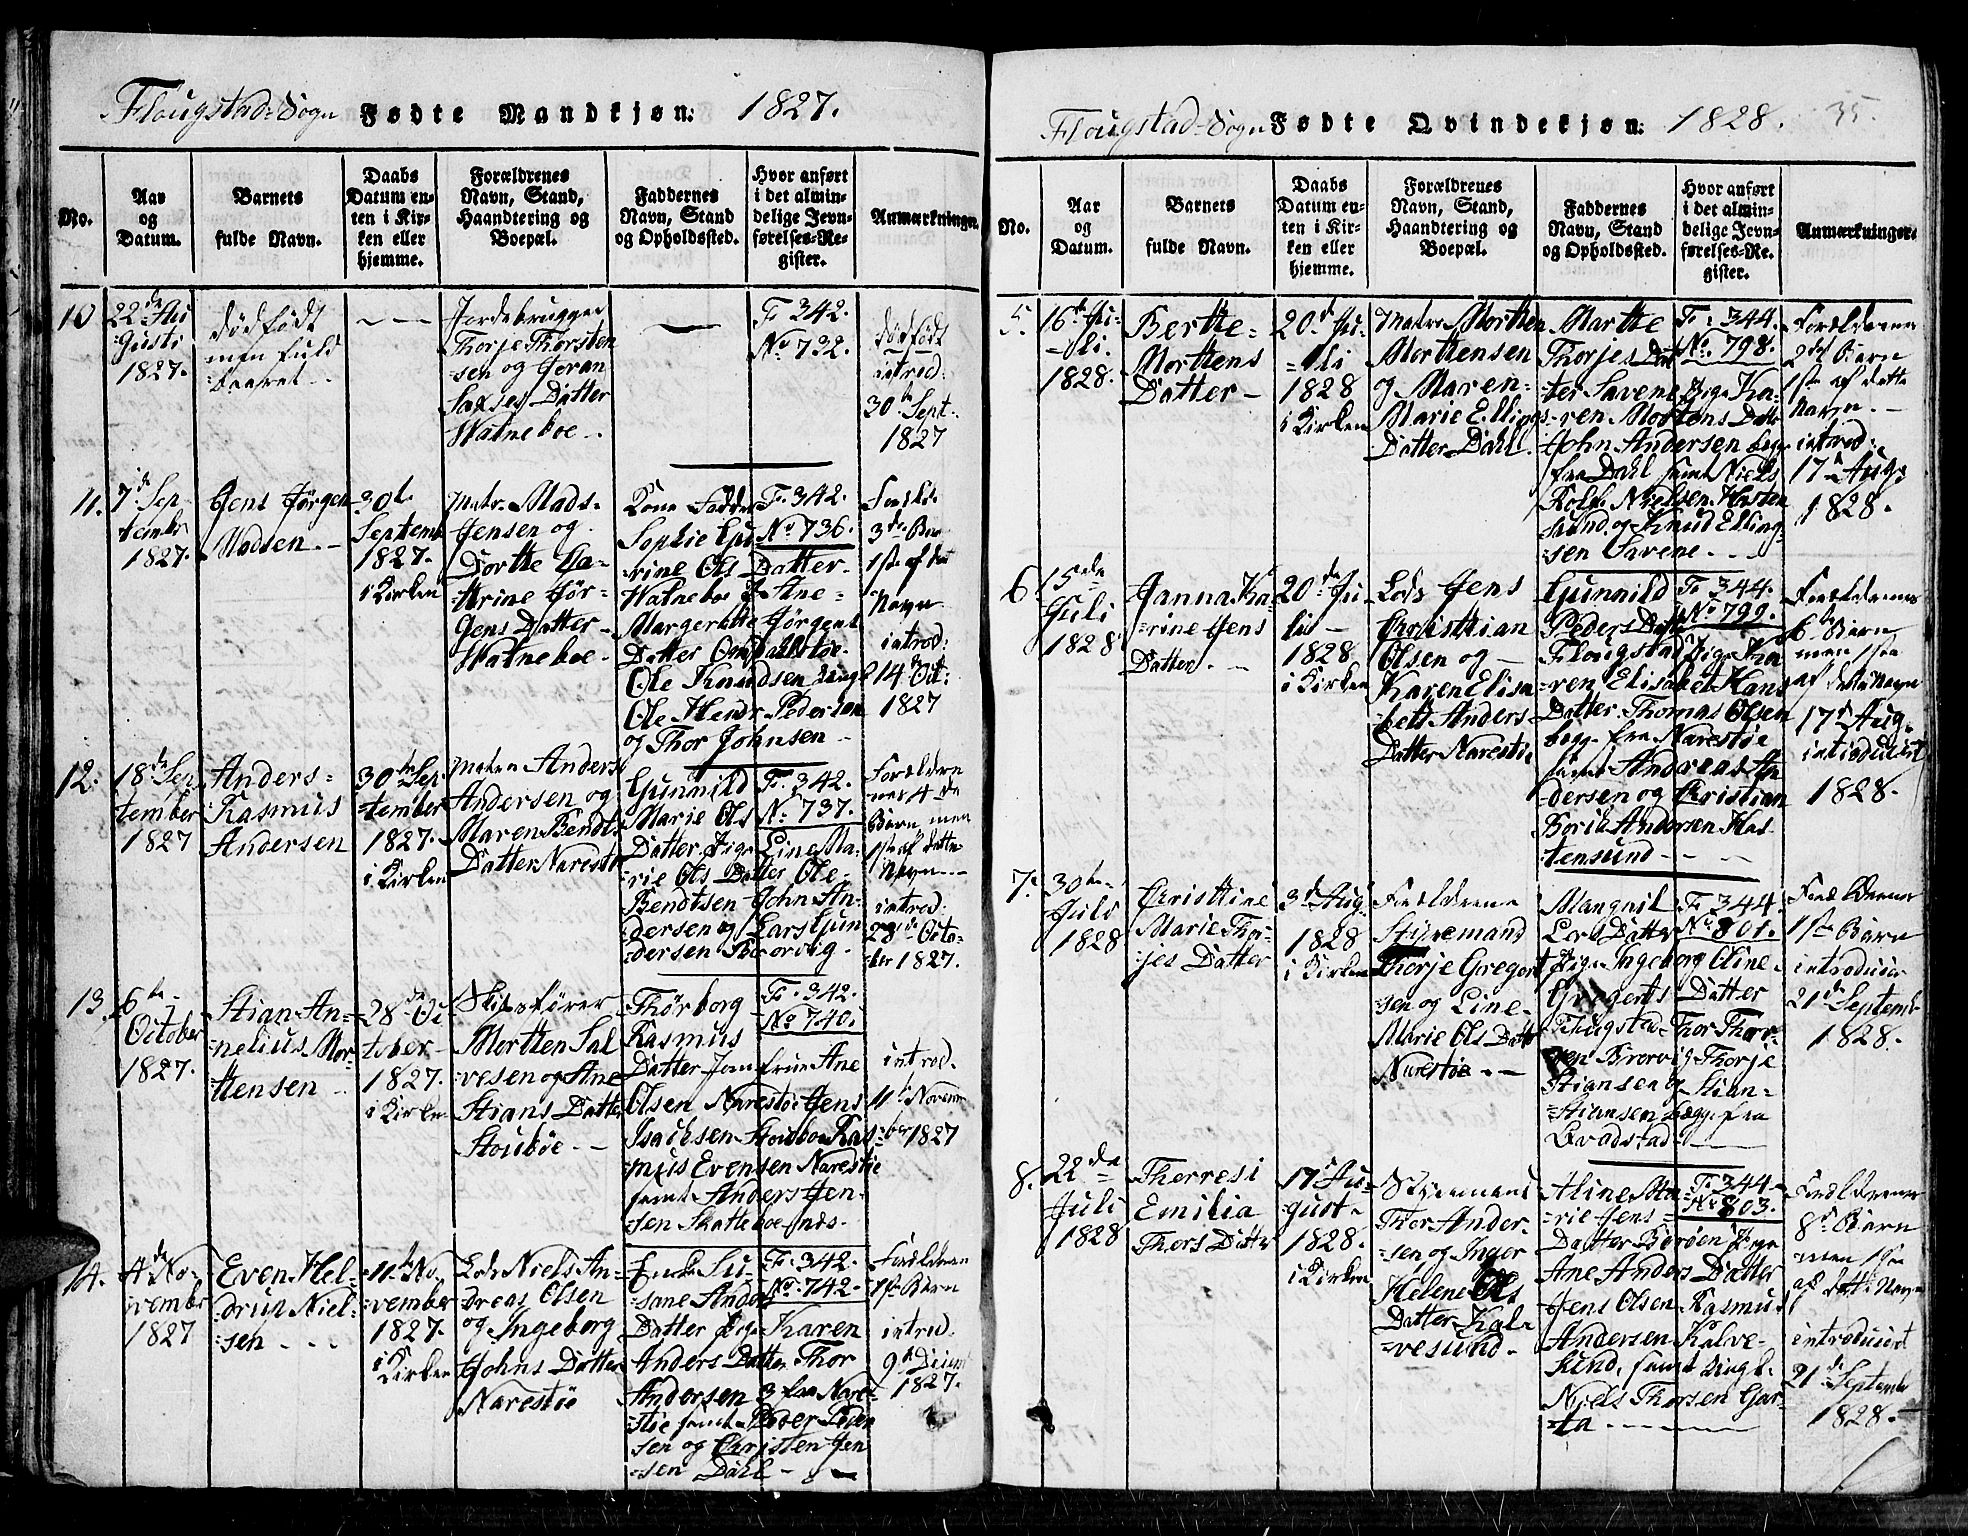 Flougstad-Sogn Fødte Mandkjøn: 1827.
No.
Aar
og
Datum.
Barnets
fulde Navn.
Daabs
Datum en-
ten i Kir-
ken eller
hjemme.
Forældrenes
Navn, Stand,
Haandtering og
Boepæl.
Faddernes
Navn, Stand
og Opholdssted.
Hvor anført
i det almin-
delige Jevn-
førelses-Re-
gister.
Anmærkninger.
10
22de Au
gusti
1827.
dødfødt
men fuld
baaret
Jordebrugger
Thorje Thorsten
sen og Joran
Saxses Datter
Watneboe
F. 342.
No 732.
dødfødt
introd:
30te Sept.
1827
11.
7de Sep
tembr
1827.
Jens Jørgen
Madsen
30te
Septemb
1827.
i Kirken
Matr. Mads
Jensen og
Dorthe Ca-
thrine Jør-
gens Datter
Watneboe
Kone Fadder
Sophie
rine Ols Datter
Watneboe P. Ane
Margerethe Jørgens
Datter
Ole Knudsen
Ole Hendr Pedersen
og Thor Johnsen
F. 342.
No 736.
3de Barn
1ste af det
Navn
introd:
14de Oct:
1827
12.
18de Sep
tember
1827
Anders
Rasmus
Andersen
30te Sep
tember
1827.
i Kirken
Matro Anders
Andersen og
Maren Bendts
Datter Narestø
Gunnild
Marie Ols
Datter Pige Line Ma-
rie Ols Datter Ole
Bendtsen John An-
dersen og Lars Gun
dersen Borøvig
F. 342.
No 737.
Forældre
nes 4de
Barn men
1ste af dette
Navn
introd.
28de Octo-
ber 1827.
13.
6te
October
1827.
Stian An-
nelius Mor-
tensen
28de Oc
tober
1827.
i Kirken
Skibsfører
Morten Sal
vesen og Ane
Stians Datter
Stoubøe
Thorborg
Rasmus
Datter Jomfrue Ane
Olsen Narestøe Jens
Isacksen Stoubøe Ras
mus Evensen Narestøe
samt Anders Jen-
sen Skatteboe
F. 342.
No 740.
introd.
11te Novem
ber 1827
14.
4de No-
vember
1827
Even Hel-
drup Niel-
sen
11te No
vember
1827.
i Kirken
Lods Niels An-
dreas Olsen
og Ingeborg
Johns Datter
Narestøe
Enke Su-
sane Anders
Datter Pige Karen
Anders Datter Thor
Andersen 3 fra Nare-
støe samt Peder Peder
sen og Christen Jen
sen Dahl
F. 342.
No. 742.
Forældrenes
1ste Barn
introd.
9de Decemb
1827.

Flougstad-Sogn Fødte Qvindekjøn: 1828. 35.
No.
Aar
og
Datum.
Barnets
fulde Navn.
Daabs
Datum en-
ten i Kir-
ken eller
hjemme.
Forældrenes
Navn, Stand,
Haandtering og
Boepæl.
Faddernes
Navn, Stand
og Opholdssted.
Hvor anført
i det almin-
delige Jevn-
førelses-Re-
gister.
Anmærkninger.
5.
16de Ju-
li.
1828.
Berthe
Mortens
Datter
20de Ju-
li
1828
i Kirken
Matro Morten
Mortensen
og Maren
Marie Ellings
Datter Dahl.
Marthe
Thorjes Dat
ter Savene Pige Ka-
ren Mortens Datt
John Andersen begge
fra Dahl samt Niels
Rolf Nielsen Hasten
sund og Knud Elling-
sen Savene
F. 344.
No 798.
Forældrenes
2det Barn
1ste af dette
Navn
introd:
17de Aug.
1828.
6.
15de
Juli
1828
Hanna Ka-
rine Jens
Datter
20de Ju
li
1828
i Kirken
Lods Jens
Christian
Olsen og
Karen Elisa
beth Anders
Datter Narestøe
Gunnild
Peders Datter
Flougstad Pige Ka
ren Elisabet Hans
Datter Thomas Olsen
begge fra Narestøe
samt Andreas An
dersen og Christian
Borid Andersen Has-
tensund
F. 344.
No 799.
Forældrenes
6te Barn
men 1ste
af dette Navn
17de Aug.
introducirt
1828.
7.
30te
Juli
1828
Christine
Marie Thor-
jes Datter
3de Aug.
1828
i Kirken
Forældrene
Styremand
Thorje Gregert
sen og Line
Marie Ols Datt
Narestøe
Mangnil
Lers Datter
Pige Ingeborg Oline
Gregerts Datter
Flougstad Thor Thor-
sen Brorvig Thorje
Stiansen og Stian
Stiansen begge fra
Gradstad
F. 344.
No 801.
Forældrenes
1ste Barn
introducirt
21de Septemb
1828.
8.
22de
Juli
1828
Therresi
Emilia
Thors Datter
17de Au-
gust
1828.
i Kirken
Styremand
Thor Ander-
sen og Inger
Helene Ols
Datter Kal-
vesund
Aline Ma-
rie Jens
Datter Borøen Pige
Ane Anders Datter
Jens Olsen Rasmus
Andersen Kalve-
sund, samt
Niels Thorsen Gar-
ta
F. 344.
No 803.
Forældrenes
8de Barn
men 1ste
af dette Navn
introducirt
21de Septemb
1828.